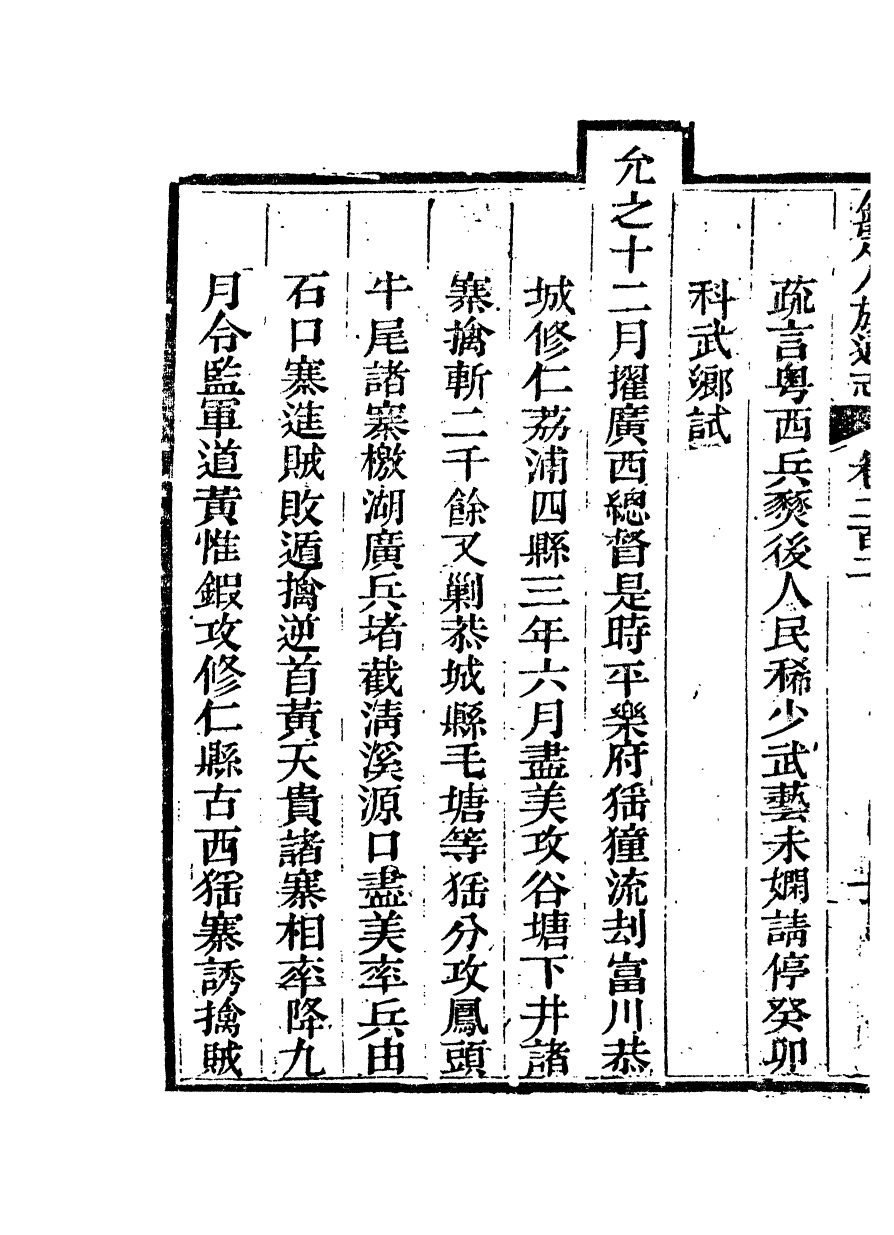 疏言粤西兵燹後人民稀少武藝未嫻請停癸卯
科武鄉試
允之十二月擢廣西總督是時平樂府猺獞流刦富川恭
城修仁荔浦四縣三年六月盡美攻谷塘下井諸
寨擒斬二千餘又剿恭城縣毛塘等猺分攻鳳頭
牛尾諸寨檄湖廣兵堵截淸溪源口盡美率兵由
石口寨進賊敗遁擒逆首黃天貴諸寨相率降九
月令監軍道黃惟鍜攻修仁縣古西猺寨誘擒賊